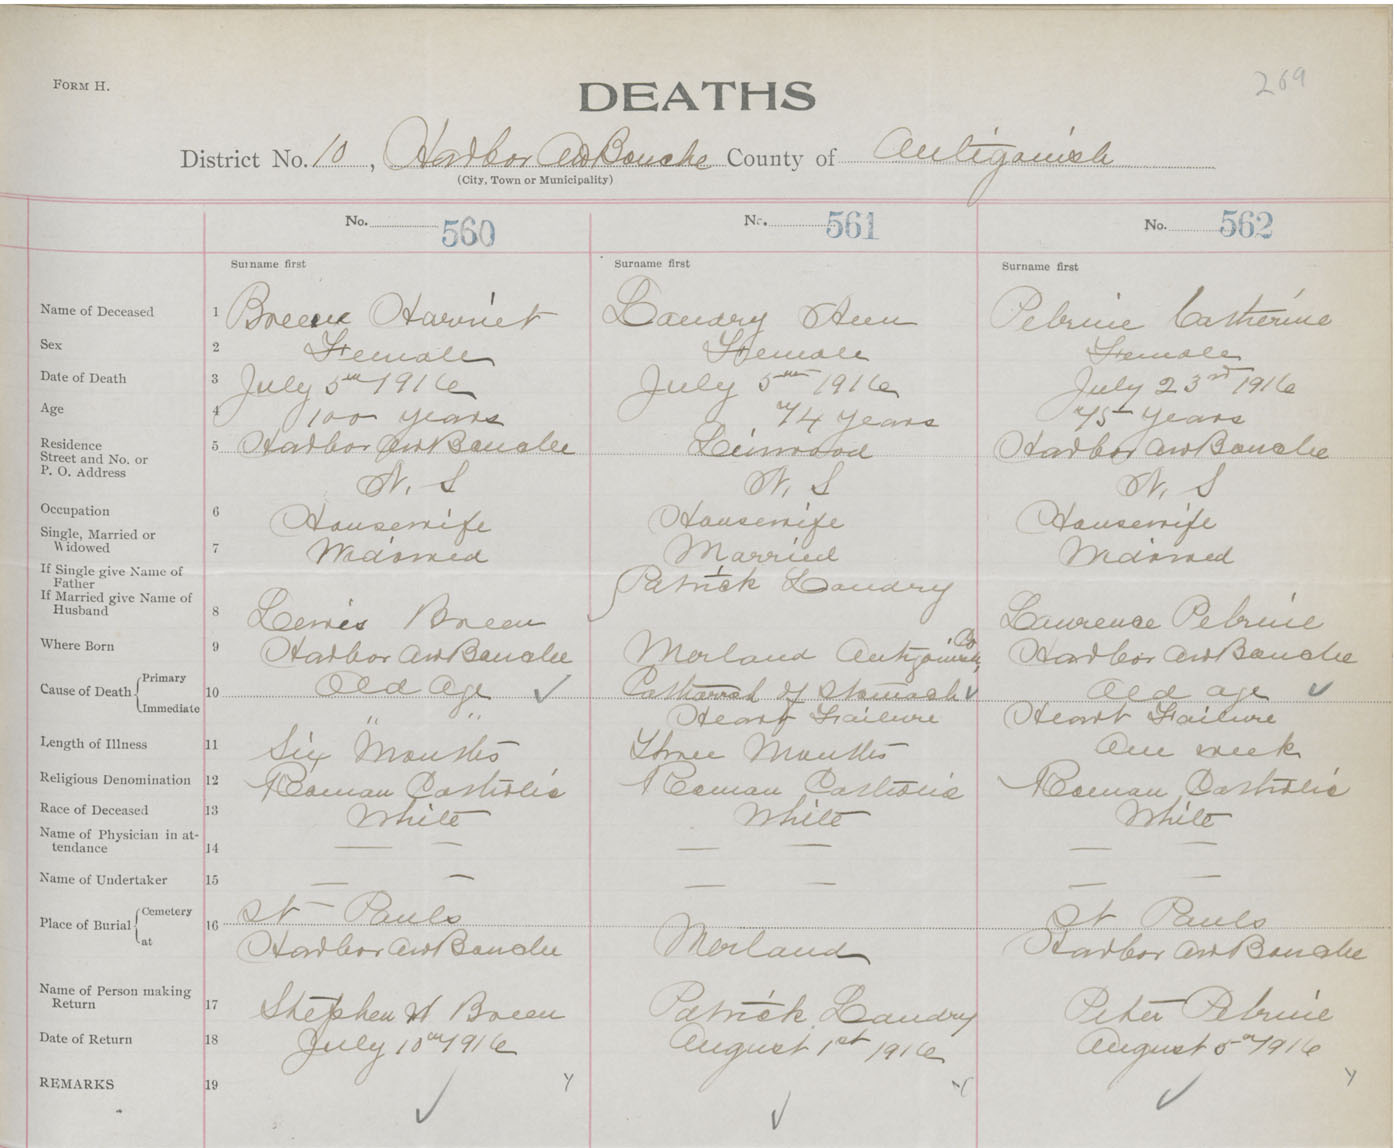 FORM H.
269
DEATHS
District No. 10, Harbor Au Bouche County of Antigonish
(City, Town or Municipality)
No. 560 No. 561 No. 562
Surname first Surname first Surname first
Name of Deceased 1 Breen Harriet Landry Ann Pelrine Catherine
Sex 2 Female Female Female
Date of Death 3 July 5th 1916 July 5th 1916 July 23rd 1916
Age 4 100 years 74 years 75 years
Residence 5 Harbor Au Bouche Linwood Harbor Au Bouche
Street and No. or
P. O. Address N. S N. S N. S
Occupation 6 Housewife Housewife Housewife
Single, Married or
Widowed 7 Widowed Married Widowed
If Single give Name of
Father Patrick Landry
If Married give Name of
Husband 8 Lewis Breen Lawrence Pelrine
Where Born 9 Harbor Au Bouche Morland Antigonish Co Harbor Au Bouche
Cause of Death Primary 10 Old Age Catharrah of Stomach Old age
Immediate " " Heart Failure Heart Failure
Length of Illness 11 Six Months Three Months One week
Religious Denomination 12 Roman Catholic Roman Catholic Roman Catholic
Race of Deceased 13 White White White
Name of Physician in at-
tendance 14 — — — — — —
Name of Undertaker 15 — — — — — —
Place of Burial Cemetery 16 St Pauls St Pauls
at Harbor Au Bouche Morland Harbor Au Bouche
Name of Person making
Return 17 Stephen W Breen Patrick Landry Peter Pelrine
Date of Return 18 July 10th 1916 August 1st 1916 August 5th 1916
REMARKS 19